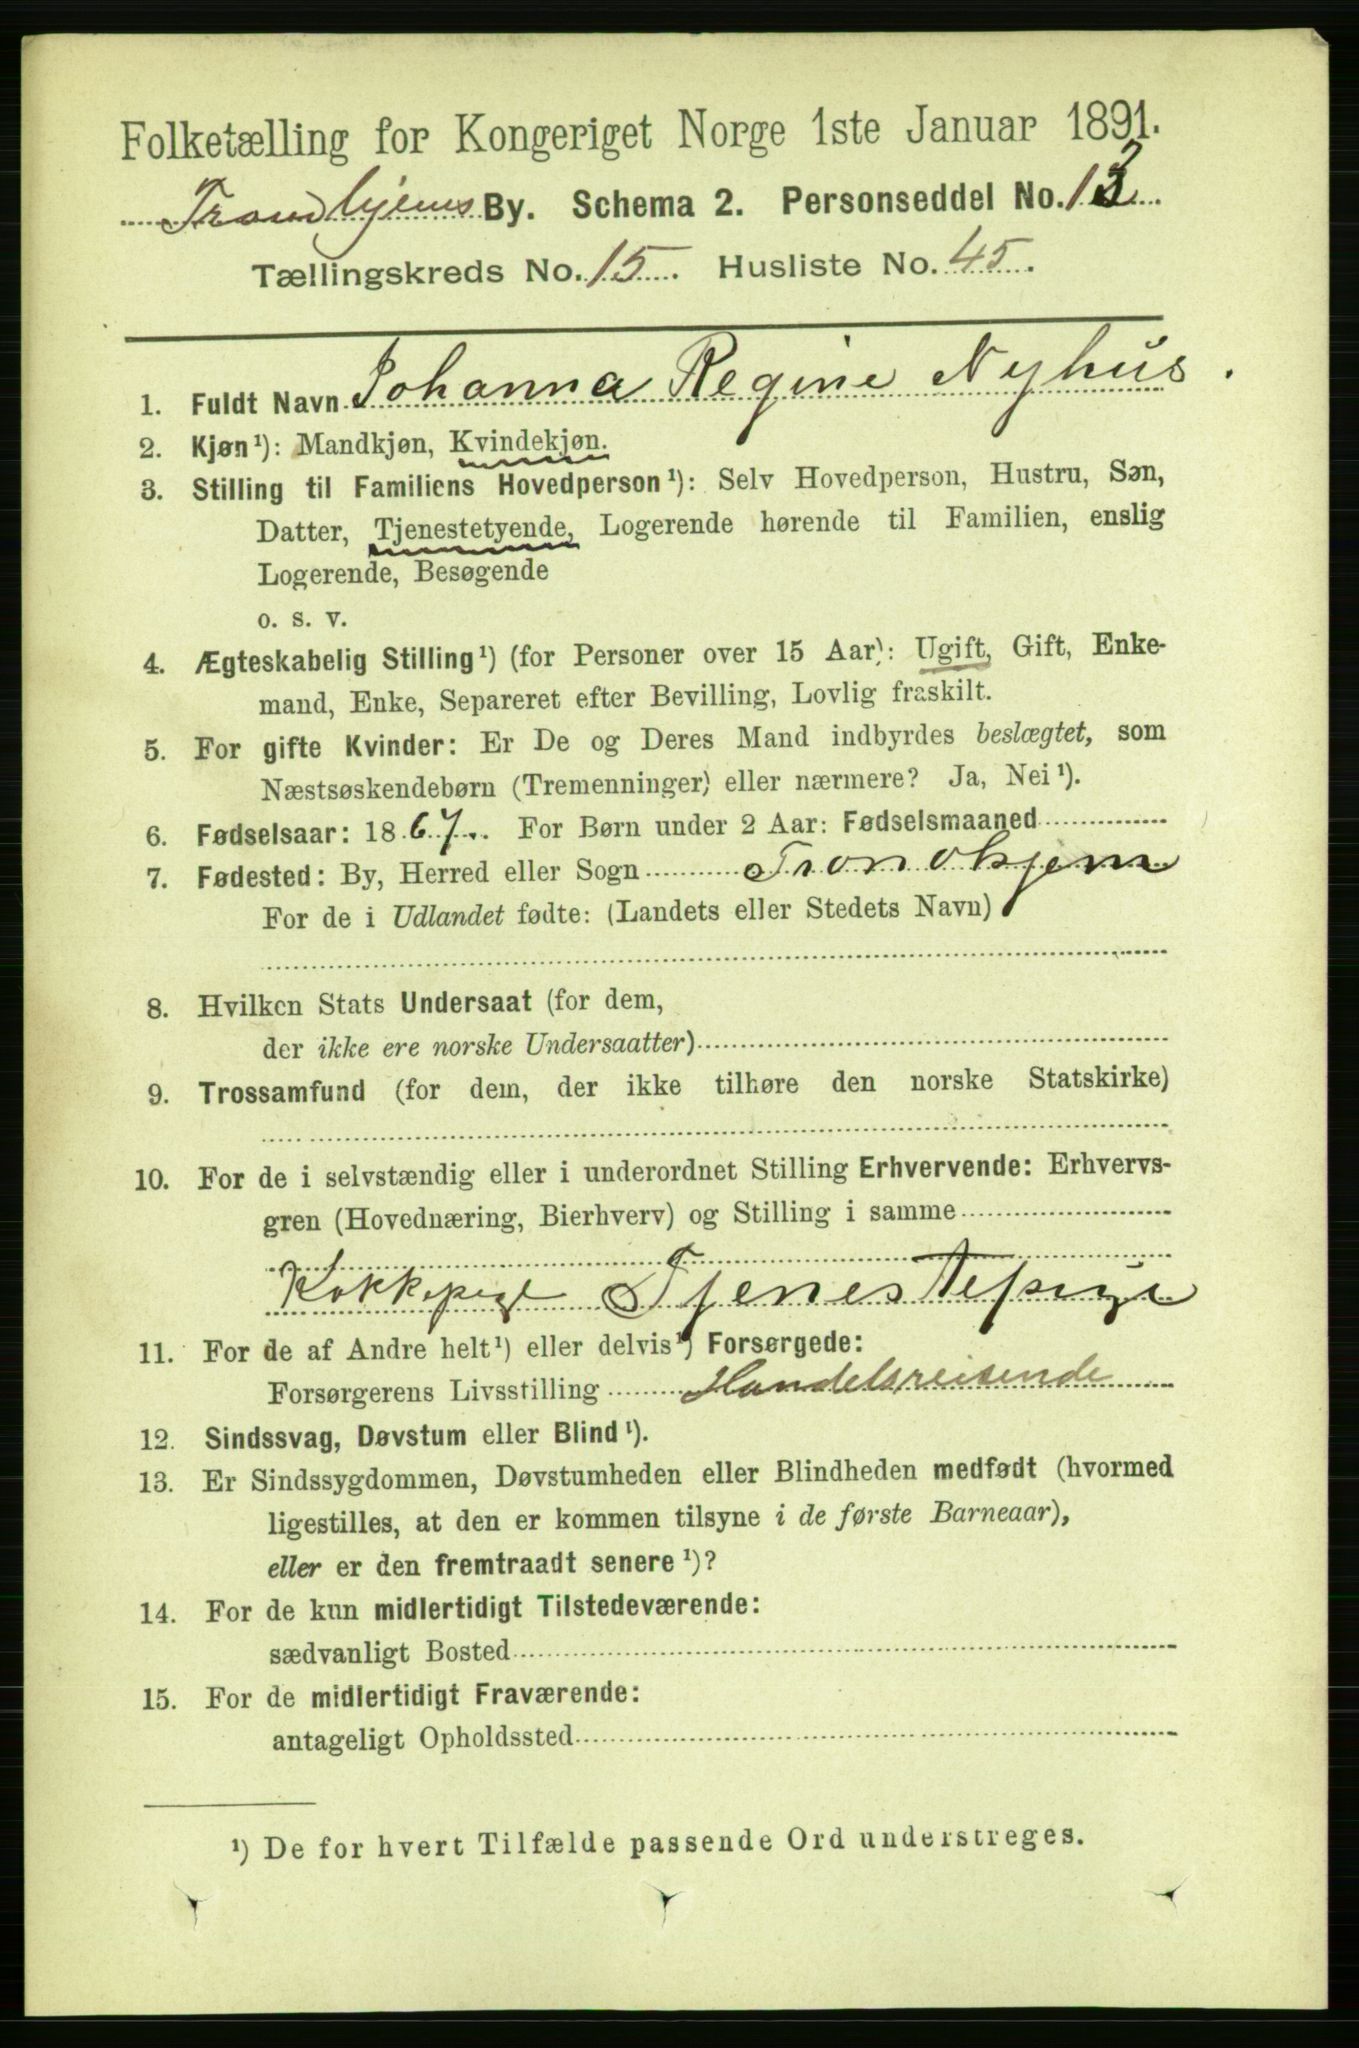 Folketælling for Kongeriget Norge 1ste Januar 1891.
Trondhjems By. Schema 2. Personseddel No.
Tællingskreds No. 15. Husliste No. 45.
1. Fuldt Navn Johanna Regine Nyhus.
2. Kjøn¹): Mandkjøn, Kvindekjøn.
3. Stilling til Familiens Hovedperson¹): Selv Hovedperson, Hustru, Søn,
Datter, Tjenestetyende, Logerende hørende til Familien, enslig
Logerende, Besøgende
o. s. v.
4. Ægteskabelig Stilling¹) (for Personer over 15 Aar): Ugift, Gift, Enke-
mand, Enke, Separeret efter Bevilling, Lovlig fraskilt.
5. For gifte Kvinder: Er De og Deres Mand indbyrdes beslægtet, som
Næstsøskendebørn (Tremenninger) eller nærmere? Ja, Nei¹).
6. Fødselsaar: 1867. For Børn under 2 Aar: Fødselsmaaned
7. Fødested: By, Herred eller Sogn Trondhjem
For de i Udlandet fødte: (Landets eller Stedets Navn)
8. Hvilken Stats Undersaat (for dem,
der ikke ere norske Undersaatter)
9. Trossamfund (for dem, der ikke tilhøre den norske Statskirke)
10. For de i selvstændig eller i underordnet Stilling Erhvervende: Erhvervs-
gren (Hovednæring, Bierhverv) og Stilling i samme
Kokkepige Tjenestepige
11. For de af Andre helt¹) eller delvis¹) Forsørgede:
Forsørgerens Livsstilling Handelsreisende
12. Sindssvag, Døvstum eller Blind¹).
13. Er Sindssygdommen, Døvstumheden eller Blindheden medfødt (hvormed
ligestilles, at den er kommen tilsyne i de første Barneaar),
eller er den fremtraadt senere¹)?
14. For de kun midlertidigt Tilstedeværende:
sædvanligt Bosted
15. For de midlertidigt Fraværende:
antageligt Opholdssted
¹) De for hvert Tilfælde passende Ord understreges.